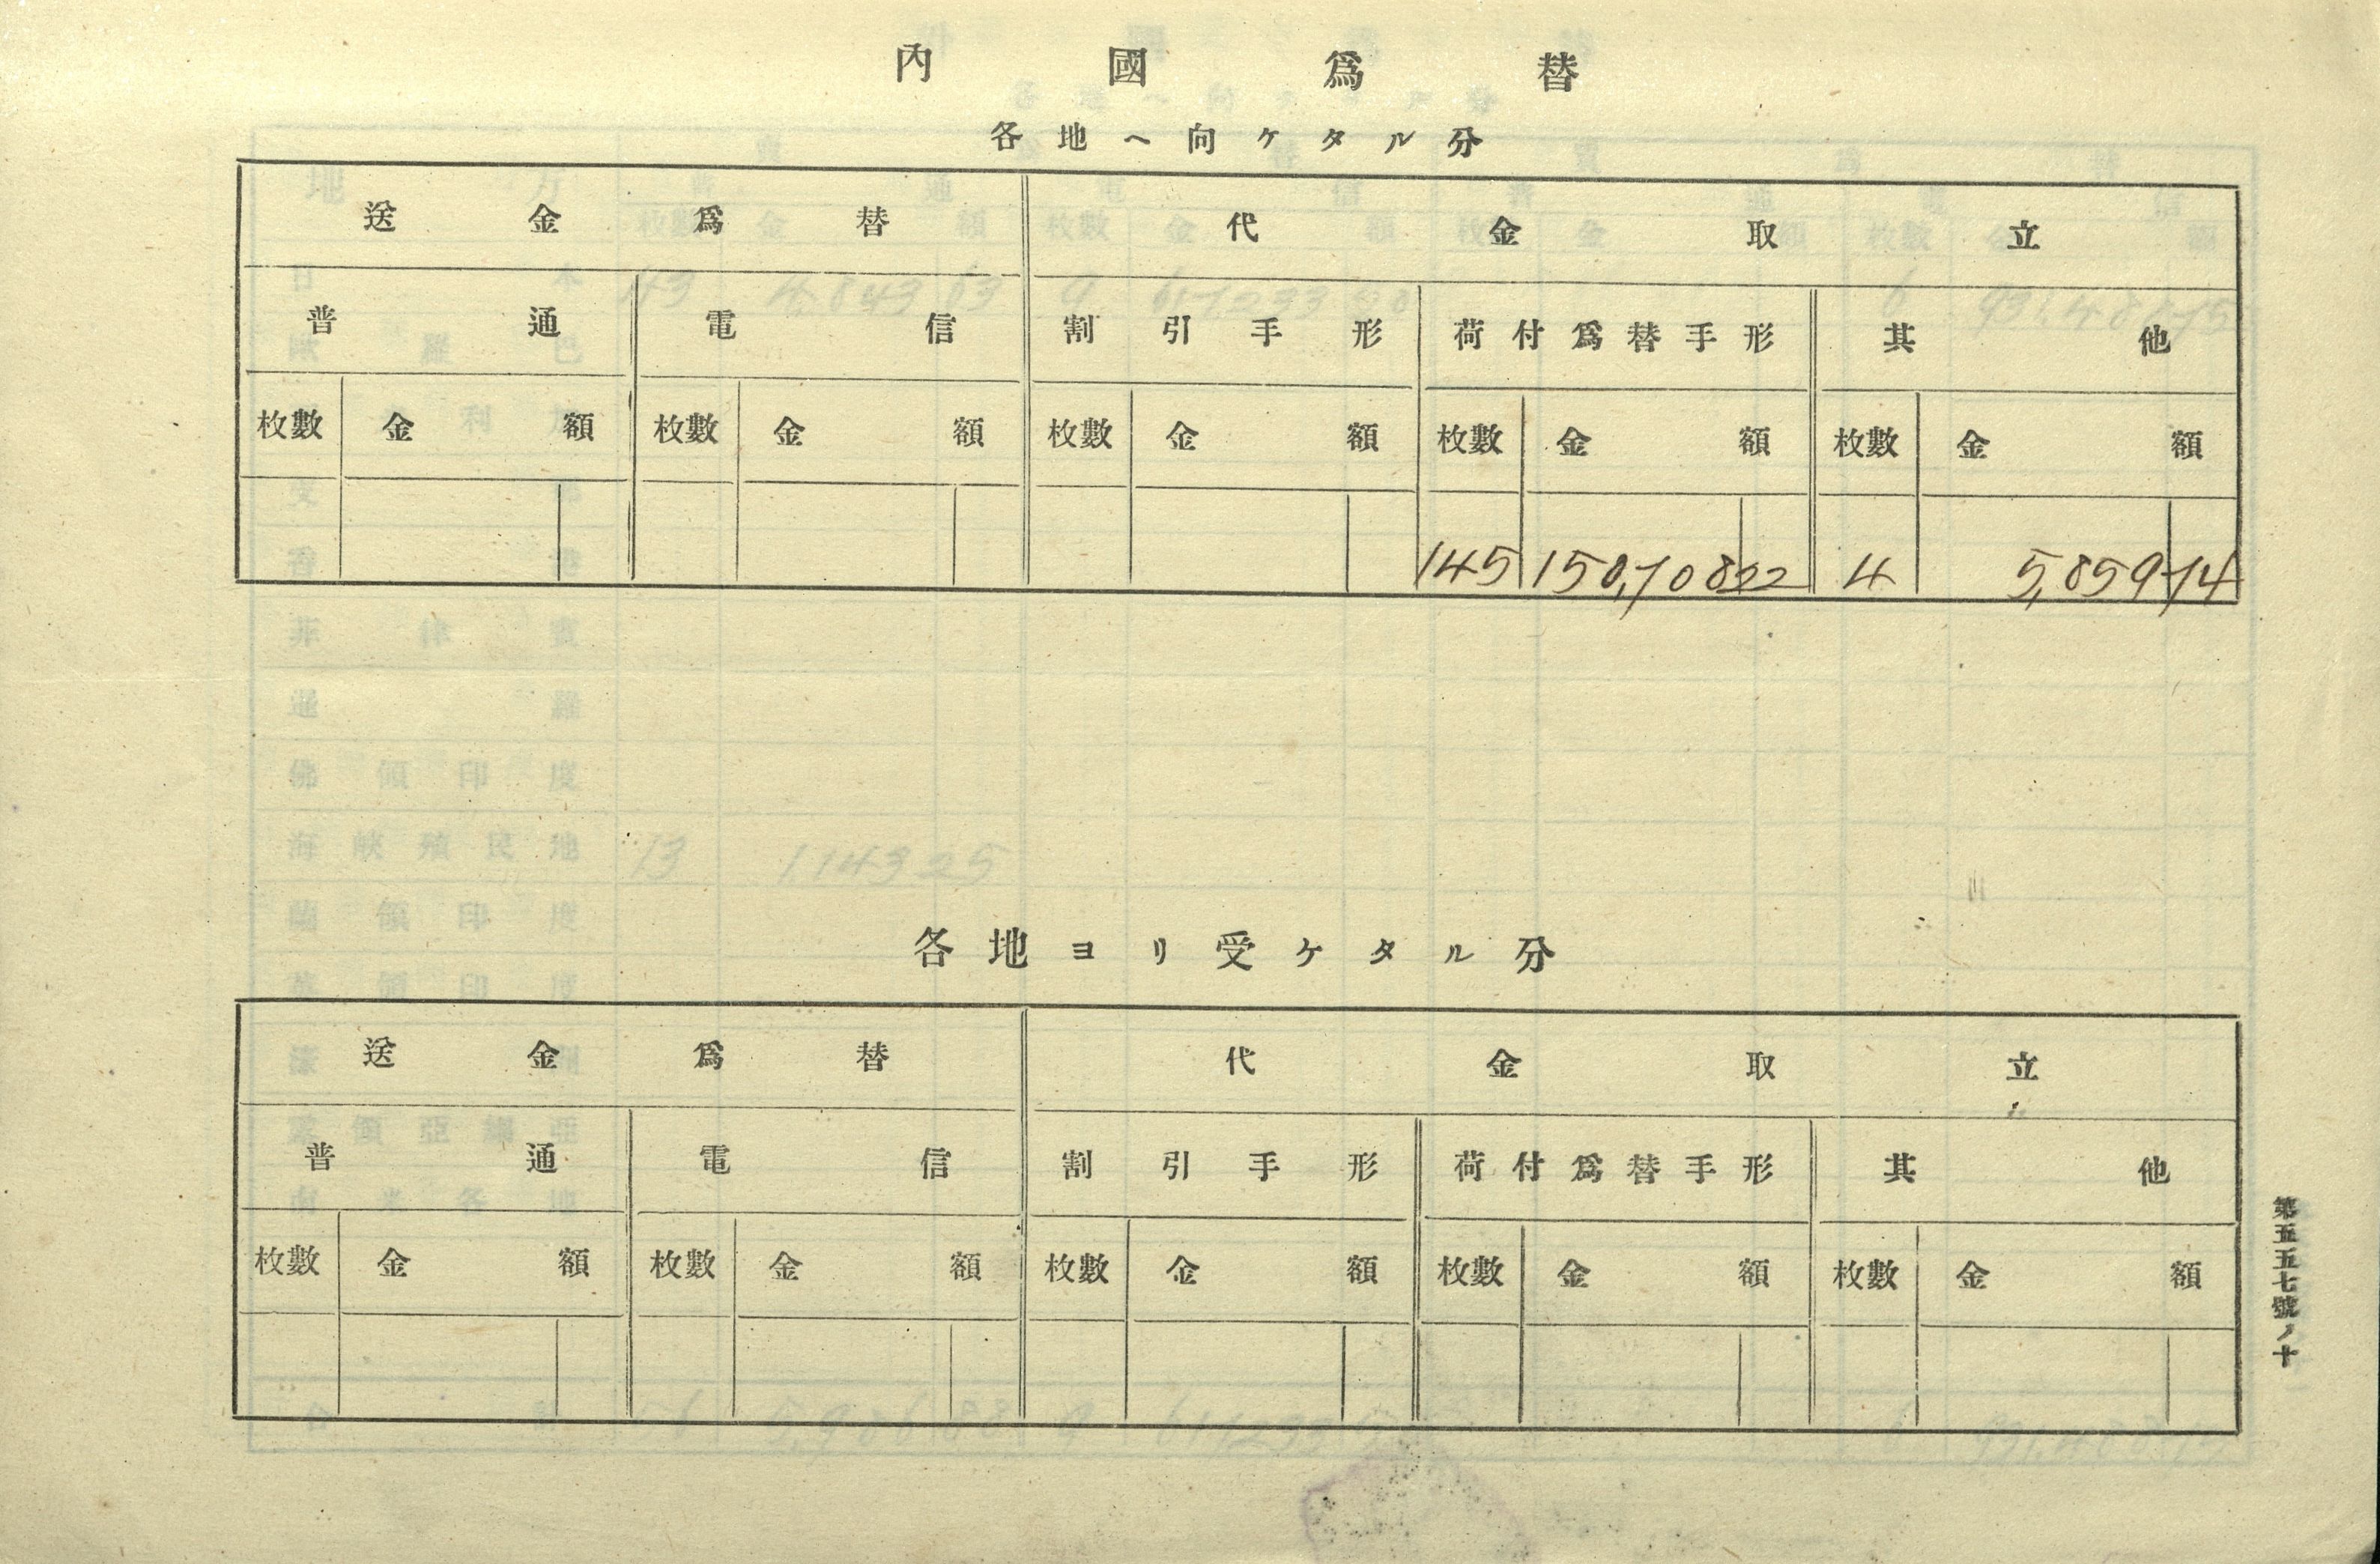 內國爲替
各地ヘ向ケタル分
送金爲替 代金取立
普通 電信 割引手形 荷付爲替手形 其他
枚數 金額 枚數 金額 枚數 金額 枚數 金額 枚數 金額
145 150,708 22 4 5,859 74
各地ヨリ受ケタル分
送金爲替 代金取立
普通 電信 割引手形 荷付爲替手形 其他
枚數 金額 枚數 金額 枚數 金額 枚數 金額 枚數 金額
第五五七號ノ十